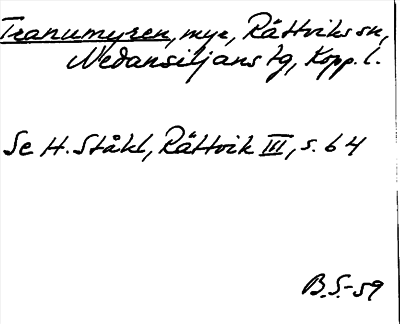 Tranumyren, myr, Rättviks sn,
Nedansiljans tg, Kopp. l.
Se H. Ståhl, Rättvik III, s. 64
B.S.-59